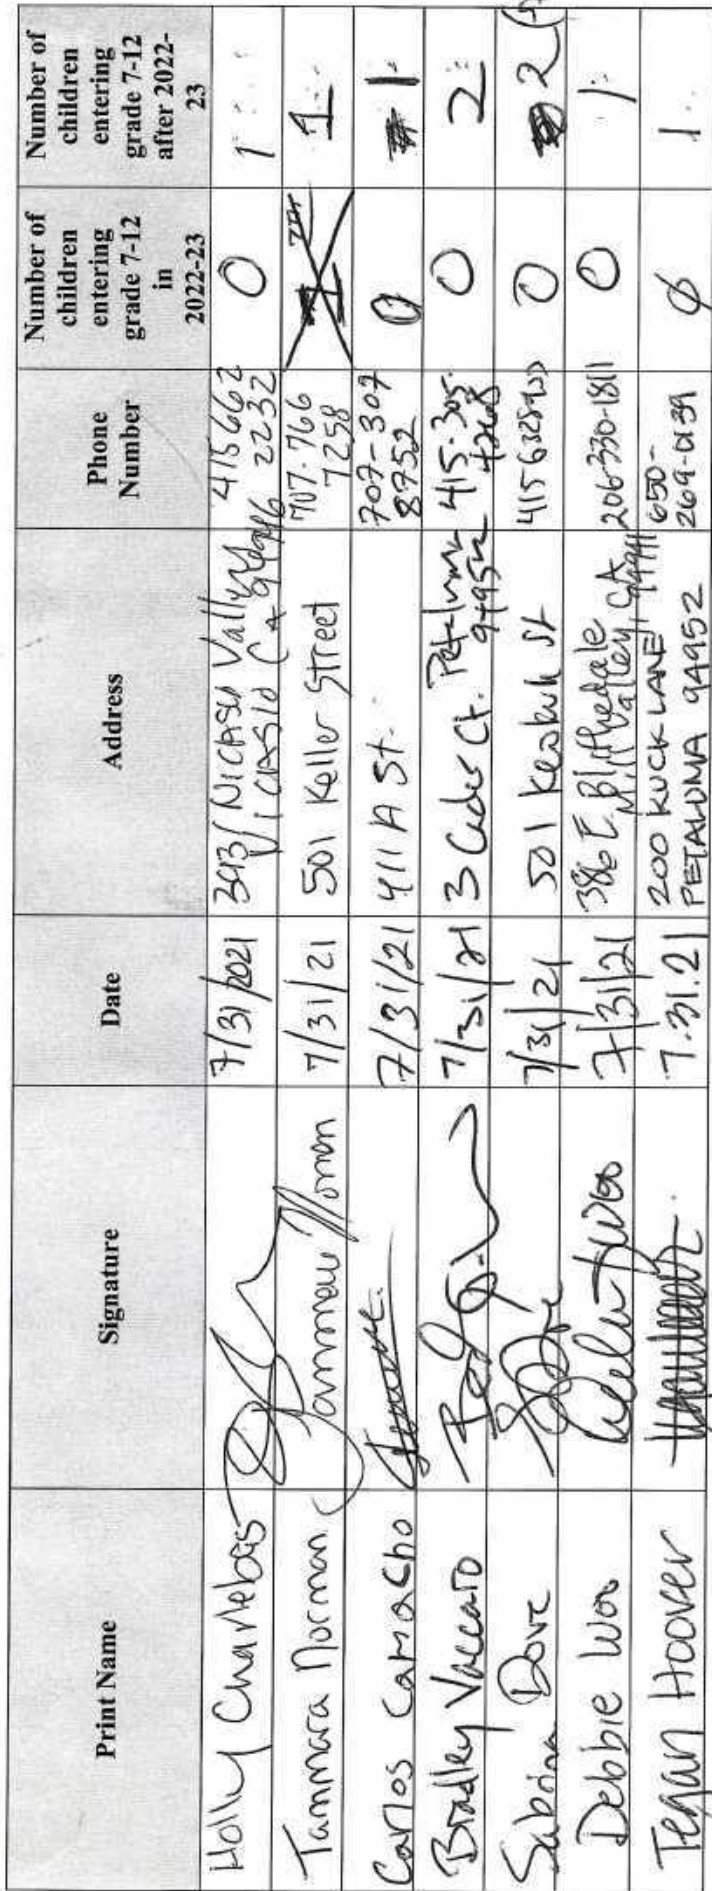 Print Name
Signature
Date
Address
Phone
Number
Number of
children
entering
grade 7-12
in
2022-23
Number of
children
entering
grade 7-12
after 2022-
23
Holly Charlebois
7/31/2021
Nicasio Valley
Nicasio CA 94946
415 662
2232
0
1
Tammara Norman
Tammara Norman
7/31/21
501 Keller Street
707-766
7258
1
Carlos Camacho
7/31/21
411 A St.
707-307
8752
0
1
Bradley Vaccaro
7/31/21
3 Ct. Petaluma
94952
415-305-
0
2
Sabrina Dove
7/31/21
501 Keokuk St
0
2
Debbie Woo
Debbie Woo
7/31/21
386 E. Blithedale
Mill Valley, CA
94941
206-330-1811
0
1
Tegan Hoover
7.31.21
200 KUCK LANE
PETALUMA 94952
650-
269-0139
0
1